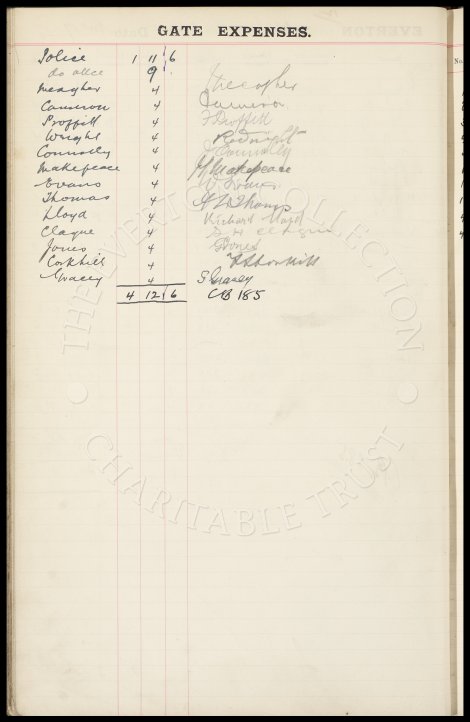 GATE EXPENSES.
Police 1 11 6
do 9
Meagher 4 Meagher
Cameron 4 Cameron
Proffitt 4 Proffitt
Wright 4
Connolly 4 Connolly
Makepeace 4 H Makepeace
Evans 4 W Evans
Thomas 4
Lloyd 4 Richard Lloyd
Clague 4 Clague
Jones 4 Jones
Corkhill 4 Corkhill
Gracey 4 S Gracey
4 12 6 CB 185
THE EVERTON COLLECTION
CHARITABLE TRUST
EVERTON
No.